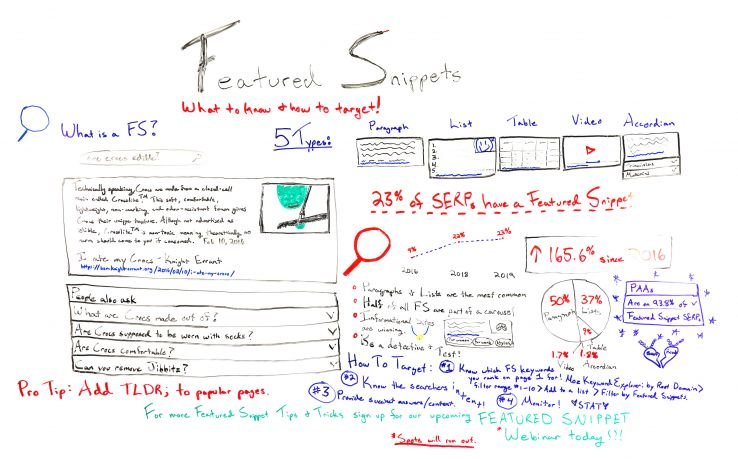 Featured Snippets
What to know & how to target!
What is a FS?
5 Types:
Paragraph List Table Video Accordian
are crocs edible?
1.
2.
3.
4.
5.
Technically speaking Crocs are made from a closed-cell
resin called Croslite™. This soft, comfortable,
lightweight, non-marking and odor-resistant foam gives
Crocs their unique texture. Although not advertised as
edible, Croslite™ is non-toxic meaning theoretically, no
harm should come to you if consumed. Feb 10, 2016
I ate my Crocs - Knight Errant
23% of SERPs have a Featured Snippet
9% 22% 23%
2016 2018 2019
↑ 165.6% since 2016
• Paragraphs & Lists are the most common
• Half of all FS are part of a carousel
• Informational sites
are winning.
• Be a detective & Test!
50% 37%
Paragraph Lists
9%
Table
1.7% 1.8%
Video Accordian
PAAs
Are on 93.8% of
Featured Snippet SERPs
People also ask
What are Crocs made out of?
Are Crocs supposed to be worn with socks?
Are Crocs comfortable?
Can you remove Jibbitz?
Pro Tip: Add TLDR; to popular pages.
How To Target:
#1 Know which FS keywords
you rank on page 1 for! Moz Keyword Explorer: by Root Domain >
filter range #1-10 > Add to a list > Filter by Featured Snippets.
#2 Know the searchers intent!
#3 Provide succinct answers/content.
#4 Monitor! *STAT
For more Featured Snippet Tips & Tricks sign up for our upcoming FEATURED SNIPPET
Webinar today!!!
*Seats will run out.